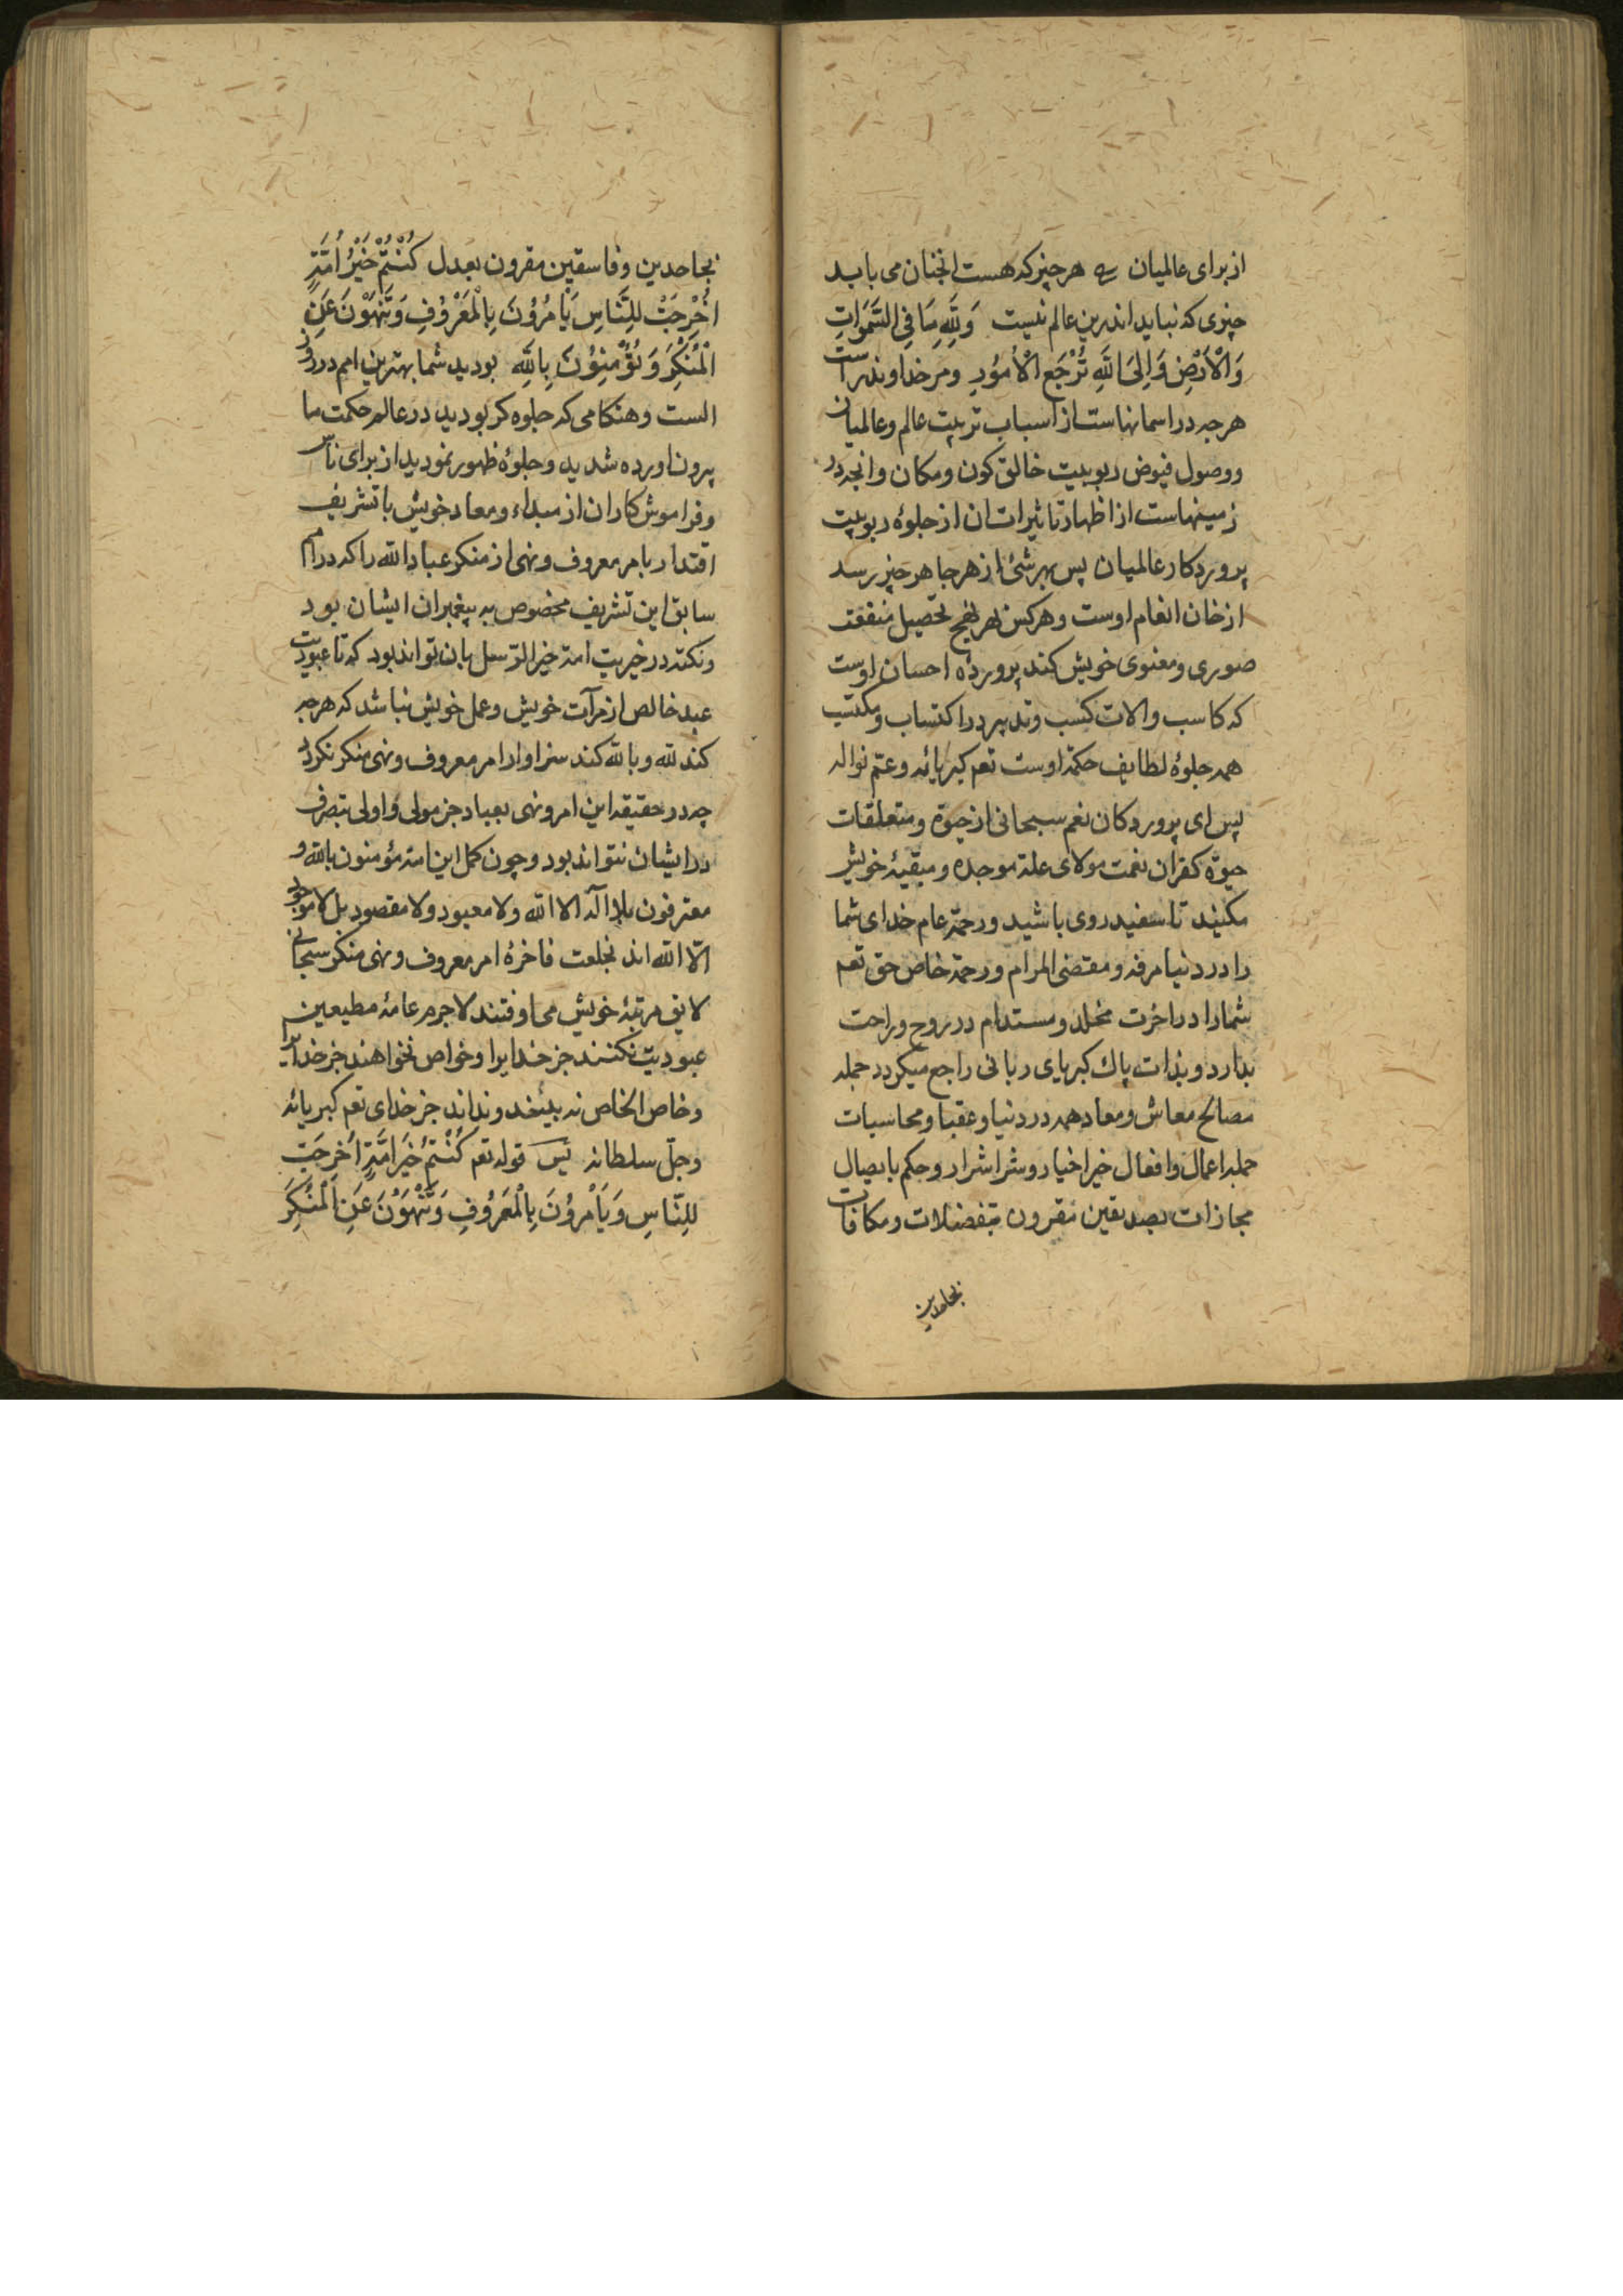 از برای عالمیان هر چیز که هست انجنان می باید
چیزی که نباید اندرین عالم نیست وَلِلّٰهِ مَا فِی السَّمٰوَاتِ
وَالْاَرْضِ وَاِلَی اللّٰهِ تُرْجَعُ الْاُمُوْرِ ومر خداوندراست
هرجه در اسمانهاست از اسباب تربیت عالم وعالمیان
ووصول فیوض ربوبیت خالق کون ومکان وانجه در
زمینهاست از اظهار تاثیرات ان از جلوۀ ربوبیت
پروردکار عالمیان پس بهر شئ از هرجا هر چیز رسد
از خان انعام اوست وهرکس بهر نهج تحصیل منفعت
صوری ومعنوی خویش کند پروردۀ احسان اوست
که کاسب والات کسب وتدبیر در اکتساب ومکتسب
همه جلوۀ لطایف حکمة اوست تعم کبریائه وعتم نواله
پس ای پروردکان نعم سبحانی از حیوة ومتعلقات
حیوة کفران نعمت مولای علة موجده ومبقیۀ خویش
مکنید تا سفید روی باشید ورحمة عام خدای شما
را در دنیا مرفه ومقتضی المرام ورحمة خاص حق تعم
شمارا در اخرت مخلد ومستدام در روح وراحت
بدارد وبذات پاك کبریای ربانی راجع میکردد جمله
مصالح معاش ومعاد همه در دنیا وعقبا ومحاسبات
جمله اعمال وافعال خیر اخیار وشر اشرار وحکم بایصال
مجازات بصدیقین مقرون بتفضلات ومکافات
بجاحدین
بجاحدین وفاسقین مقرون بعدل کُنْتُمْ خَیْرُ اُمَّةٍ
اُخْرِجَتْ لِلنَّاسِ یَامُرُوْنَ بِالْمَعْرُوْفِ وَتَنْهَوْنَ عَنِ
الْمُنْکَرِ وَتُؤْمِنُوْنَ بِاللّٰهِ بودید شما بهترین امم در روز
الست وهنکامی که جلوه کر بودید در عالم حکمت ما
بیرون اورده شدید وجلوۀ ظهور نمودید از برای ناس
وفراموش کاران از مبداء ومعاد خویش با تشریف
اقتدار بامر معروف ونهی از منکر عباد الله را که در امم
سابق این تشریف مخصوص به پیغمبران ایشان بود
ونکته در خیریت امة خیر الرّسل بان تواند بود که تا عبودیت
عبد خالص از مرآت خویش وعمل خویش نباشد که هرجه
کند لله وبالله کند سزاوار امر معروف ونهی منکر نکردد
چه در حقیقه این امر ونهی بعباد جز مولی واولی بتصرف
در ایشان نتواند بود وچون کمل این امة مؤمنون بالله و
معترفون بلا اله الا الله ولا معبود ولا مقصود بل لا موجود
الّا الله اند بخلعت فاخرۀ امر معروف ونهی منکر سبحانی
لایق مرتبۀ خویش می اوفتند لاجرم عامۀ مطیعین
عبودیت نکنند جز خدایرا وخواص نخواهند جز خدایرا
وخاص الخاص نه بینند وندانند جز خدای تعم کبریائه
وجلّ سلطانه پس قوله تعم کُنْتُمْ خَیْرَ اُمَّةٍ اُخْرِجَتْ
لِلنَّاسِ وَیَاْمُرُوْنَ بِالْمَعْرُوْفِ وَتَنْهَوْنَ عَنِ الْمُنْکَرِ